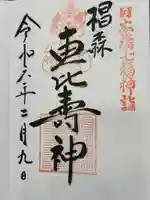 日本橋七福神詣
椙森
恵比壽神
令和六年二月九日